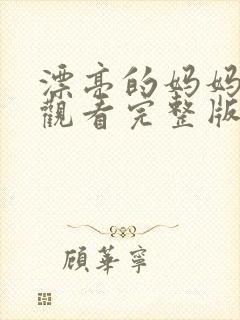 漂亮的妈妈
觀看完整版
顧華寧